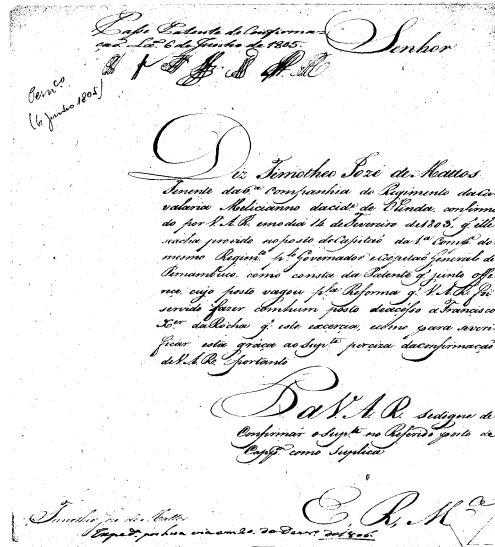 Passe Patente de Confirma-
çaõ. Lxª 6 de Junho de 1805.
Senhor
Pernco
(6 junho 1805)
Diz Timotheo Jozé de Mattos
Tenente da 6ª Companhia do Regimento da Ca
valaria Meliciana da cide de Olinda, confirma
do por V. A. R. em o dia 14 de Fevereiro de 1803, q' elle
se acha provido no posto de Capitaõ da 1ª Compª do
mesmo Regimto pto Governador e Capitaõ General de
Pernambuco, como consta da Patente q' junto offe
rece, cujo posto vagou pla Reforma q' V. A. R. foi
servido fazer com hum posto de acesso a Francisco
Xer da Rocha q' este exercia, e como para se veri
ficar esta graça ao Supte perciza da confirmaçaõ
de V. A. R. portanto
Pa V. A. R. se digne de
Confirmar o Supte no Referido posto de
Cappm como Suplica
E. R. Mce
Timotheo Joze de Mattos